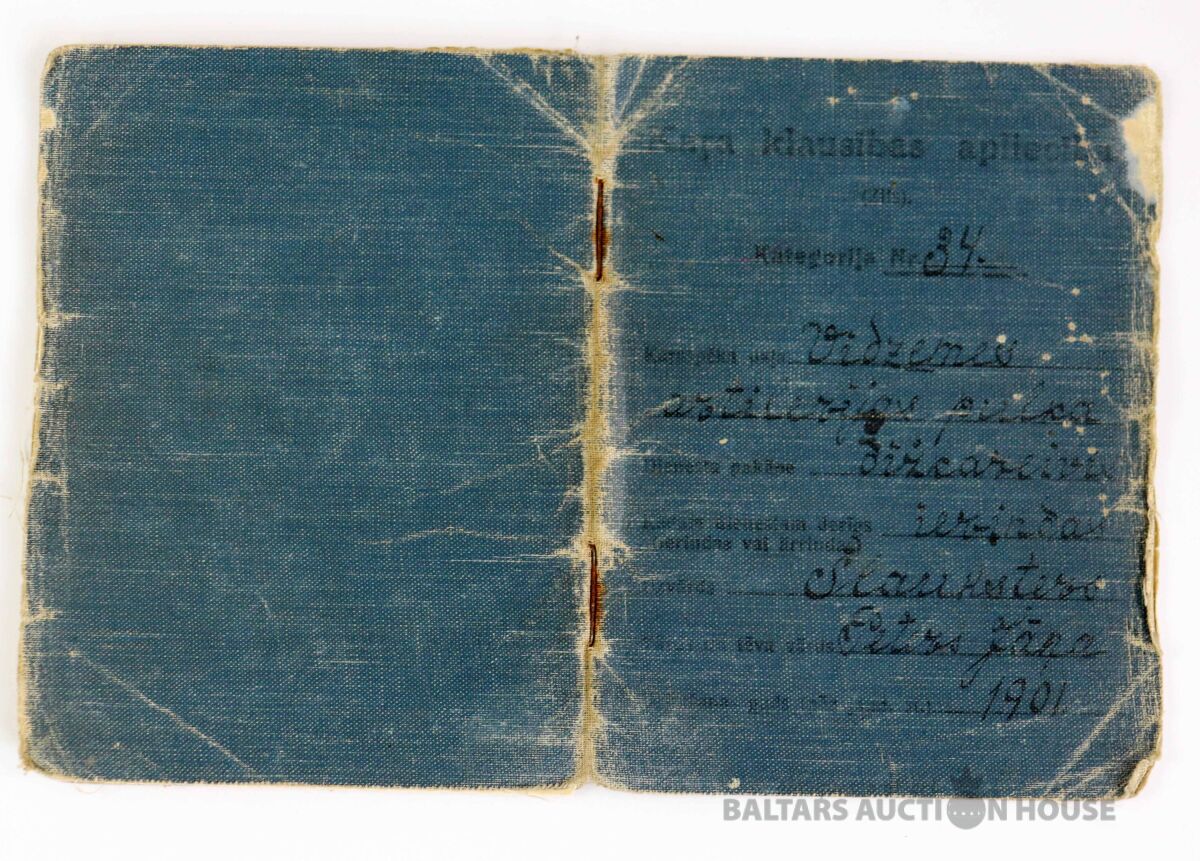 Kaŗa klausības apliecība
(Zila).
Kategorija Nr. 34.
Karaspēka daļa Vidzemes
artilerijas pulka
Dienesta pakāpe dižkareivis
Kādam dienestam derīgs ierindas
(ierindas vai ārrindas)
Uzvārds Šlauksters
tēva vārds Pēters Jāņa
gads 1901.
BALTARS AUCTION HOUSE